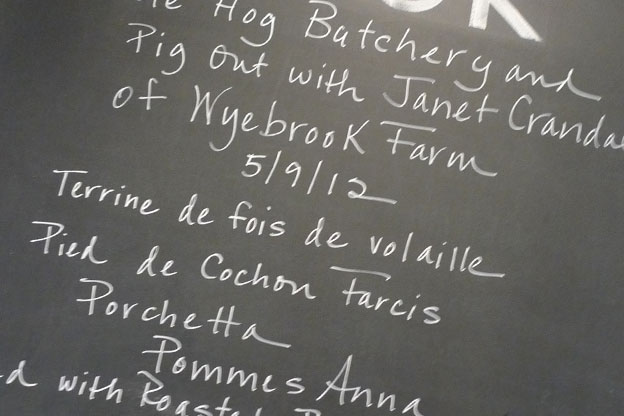 Hog Butchery and
Pig out with Janet
of Wyebrook Farm
5/9/12
Terrine de fois de volaille
Pied de Cochon Farcis
Porchetta
Pommes Anna
with